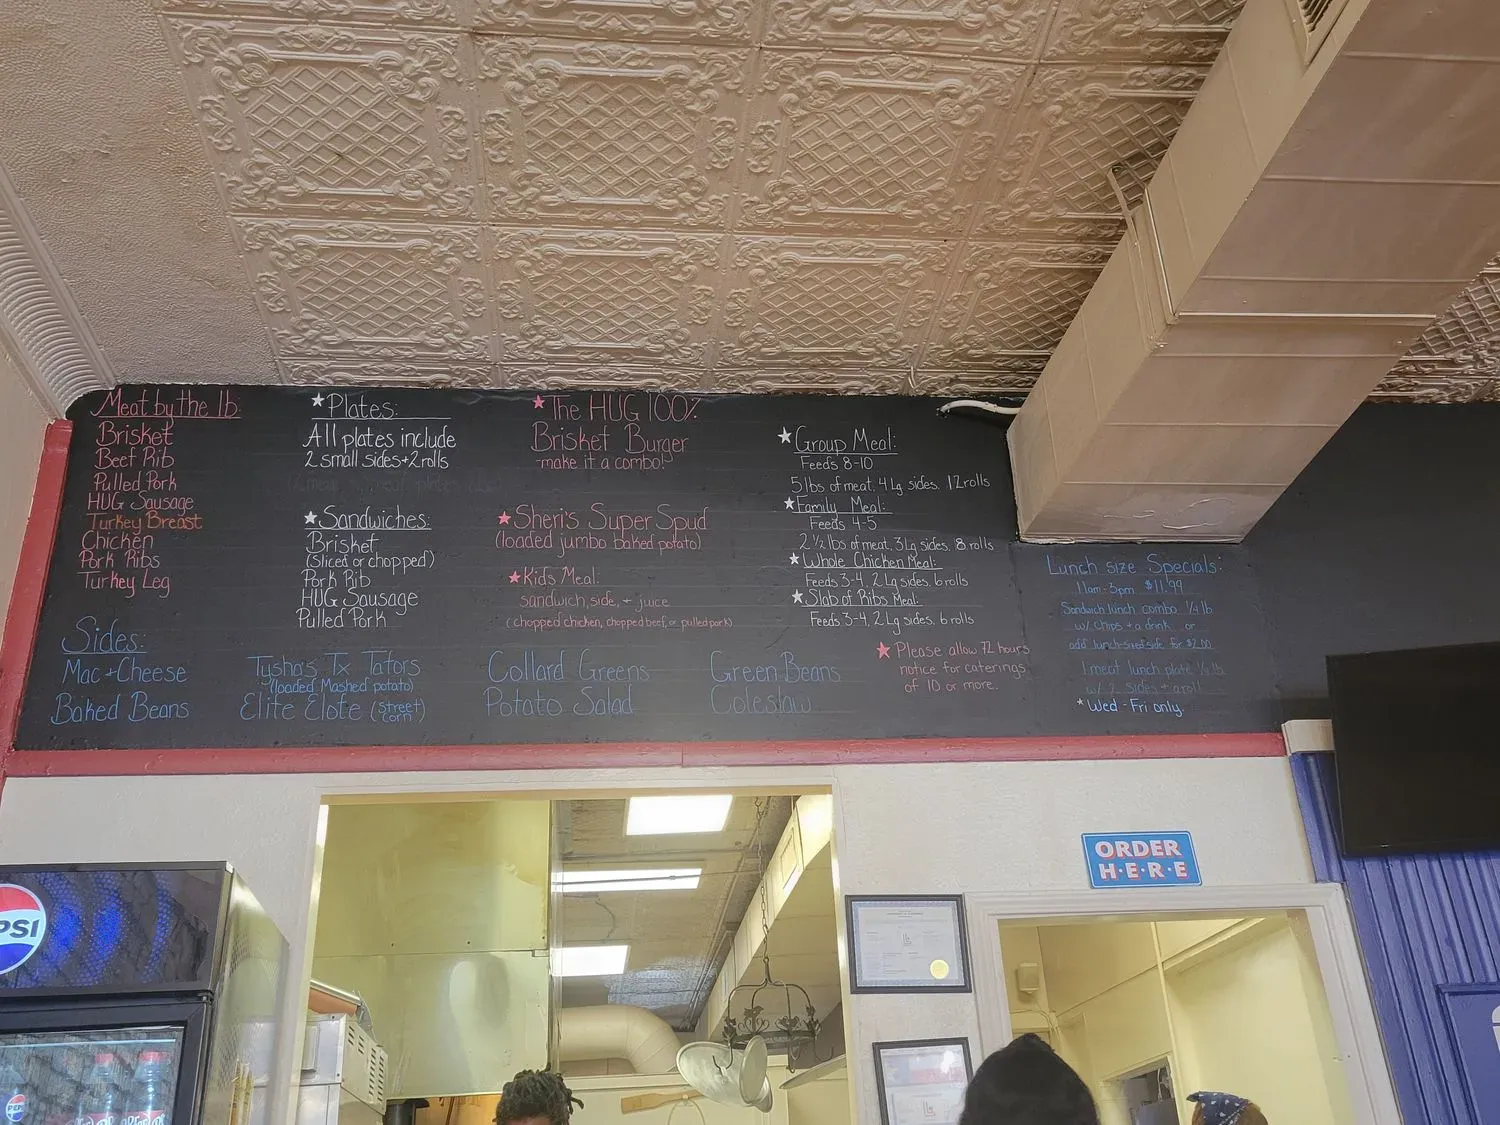 Meat by the lb:
Brisket
Beef Rib
Pulled Pork
HUG Sausage
Turkey Breast
Chicken
Pork Ribs
Turkey Leg
★Plates:
All plates include
2 small sides+2rolls
★Sandwiches:
Brisket
(sliced or chopped)
Pork Rib
HUG Sausage
Pulled Pork
★The HUG 100%
Brisket Burger
-make it a combo!-
★Sheri's Super Spud
(loaded jumbo baked potato)
★Kids Meal:
sandwich, side, + juice
(chopped chicken, chopped beef, or pulled pork)
★Group Meal:
Feeds 8-10
5 lbs of meat. 4 Lg sides. 12 rolls
★Family Meal:
Feeds 4-5
2 ½ lbs of meat, 3 Lg sides. 8 rolls
★Whole Chicken Meal:
Feeds 3-4, 2 Lg sides. 6 rolls
★Slab of Ribs Meal:
Feeds 3-4, 2 Lg sides. 6 rolls
★Please allow 72 hours
notice for caterings
of 10 or more.
Lunch size Specials:
11am-3pm $11.99
Sandwich lunch combo ¼ lb
w/ chips + a drink or
add lunch-sized side for $2.00
1 meat lunch plate
w/ 2 sides + a roll
*Wed - Fri only.
Sides:
Mac +Cheese
Baked Beans
Tysha's Tx Tators
(loaded Mashed potato)
Elite Elote (street corn)
Collard Greens
Potato Salad
Green Beans
Coleslaw
ORDER
H·E·R·E
PSI
PEPSI